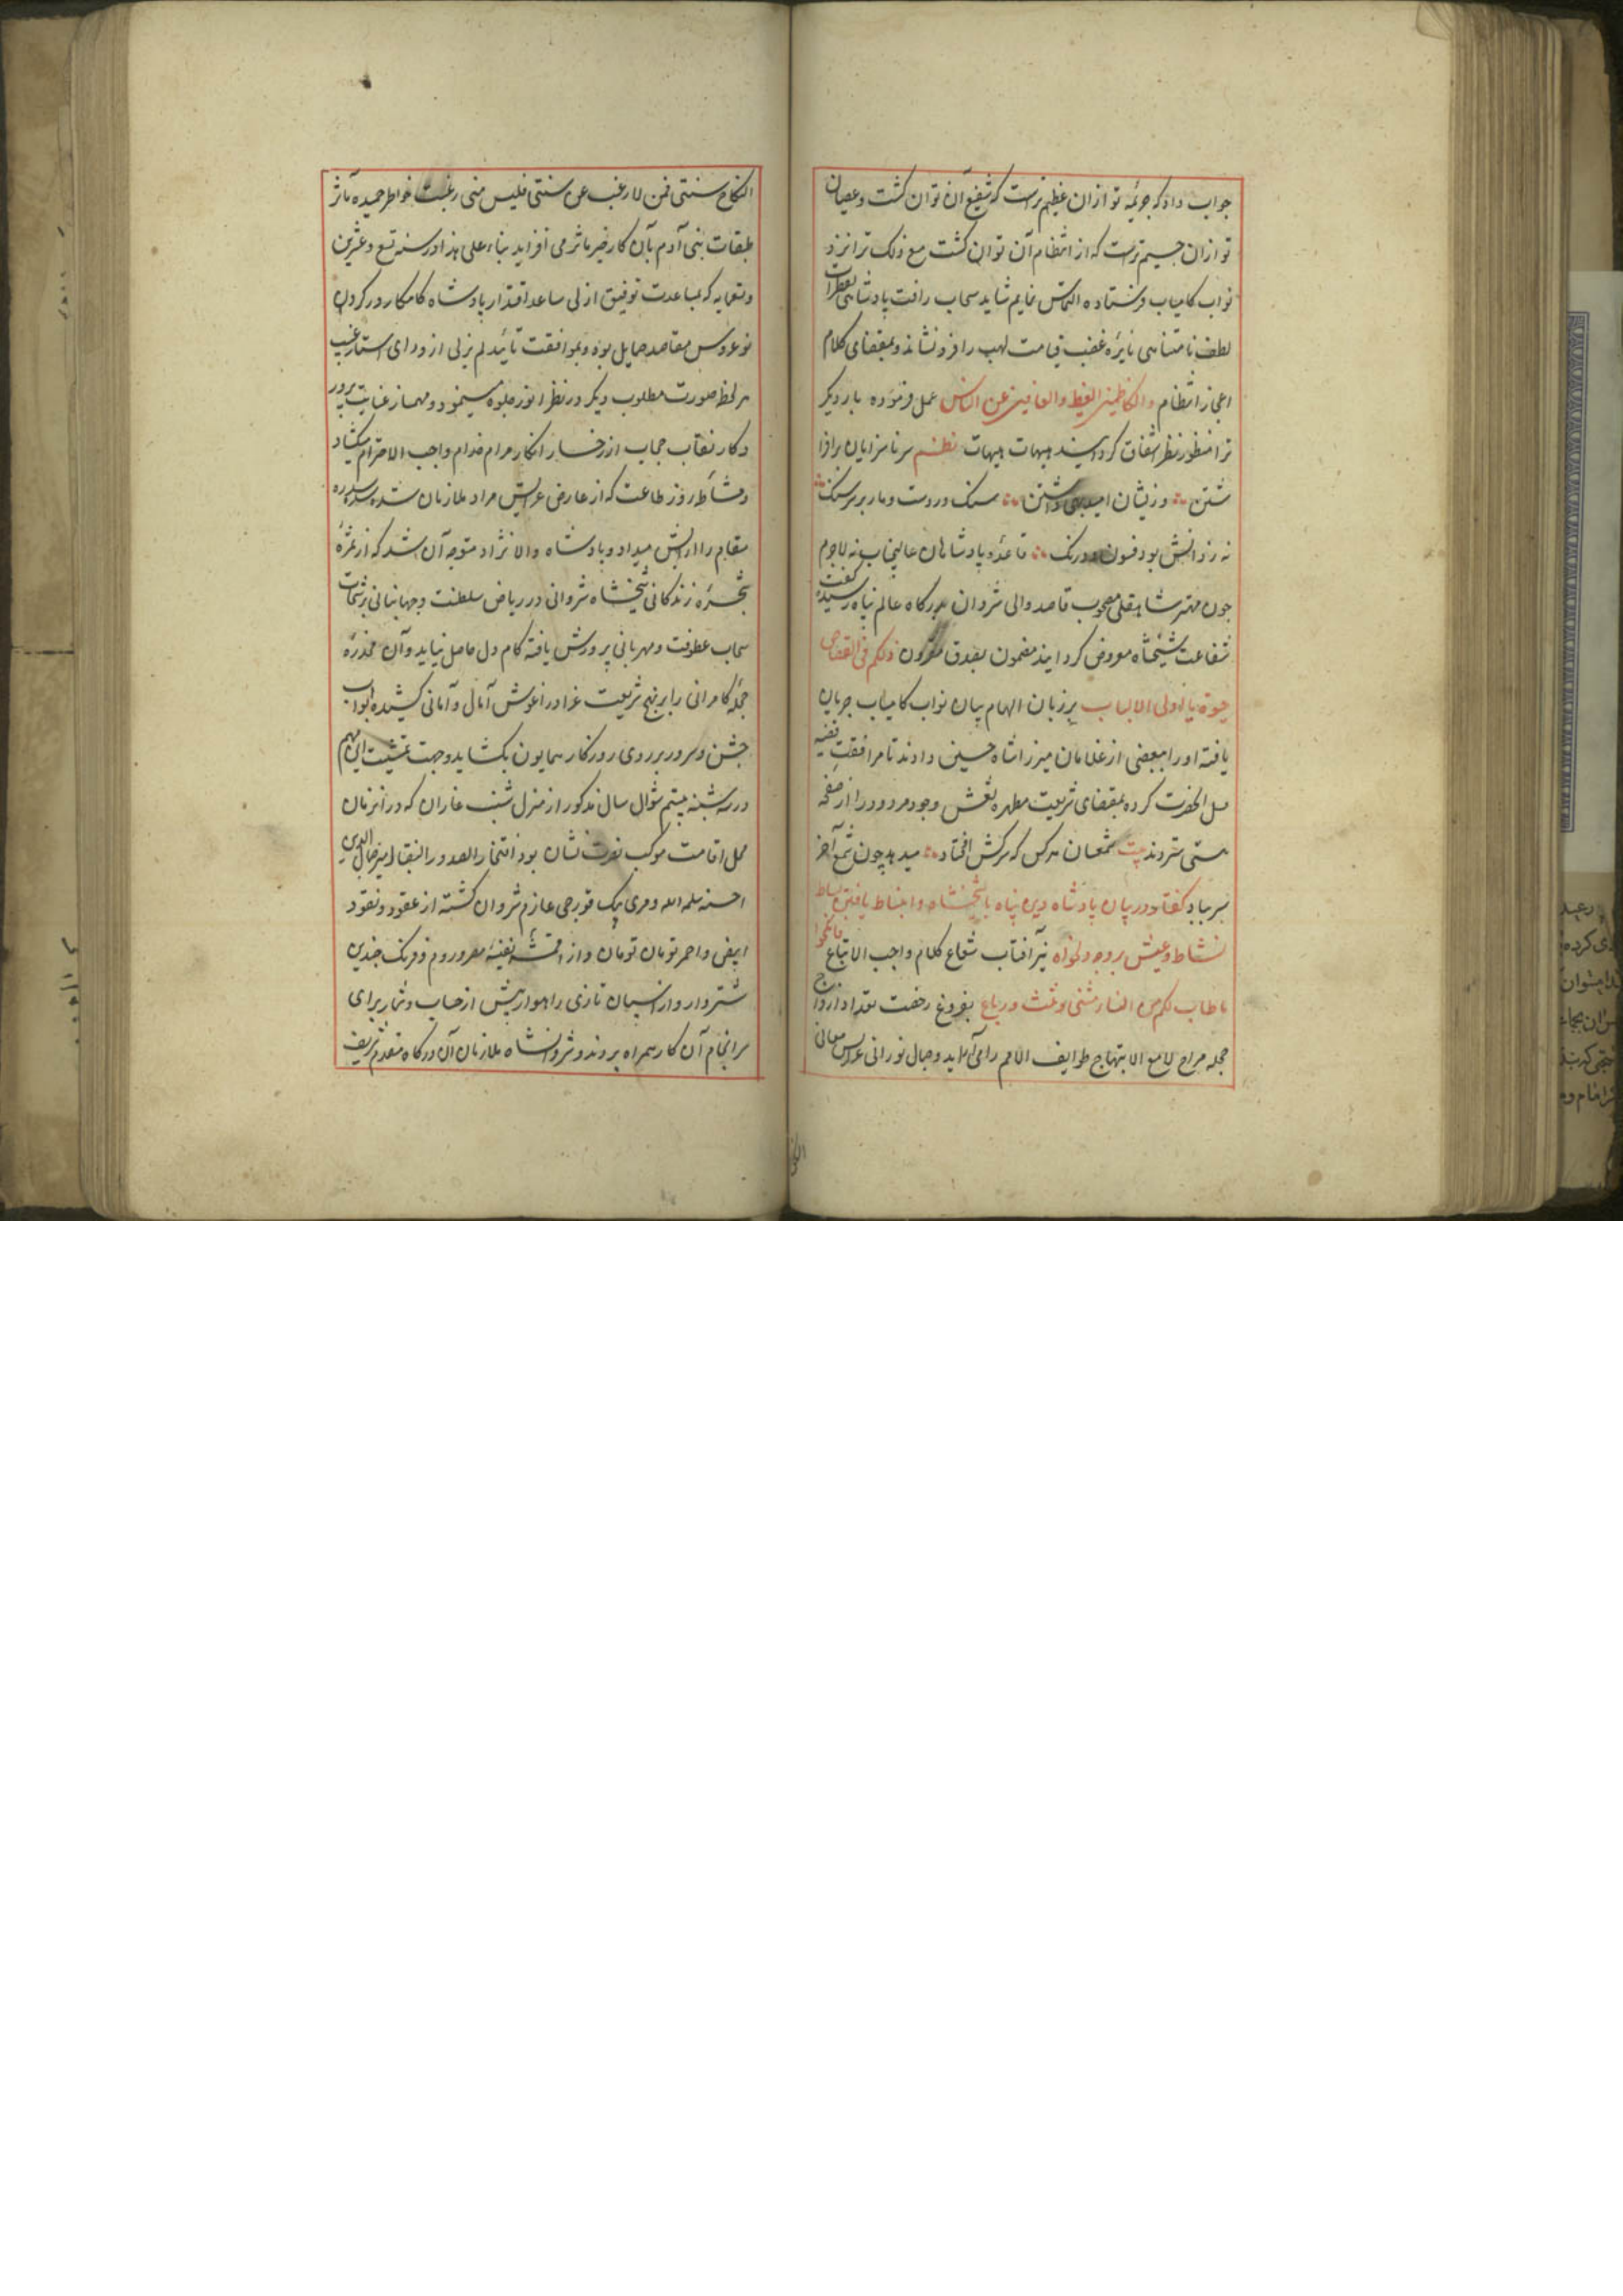 جواب داد که جریمه تو از ان عظیم ترست که شفیع آن توان کشت و عصیان
تو ازان جسیم ترست که از انتظام آن توان کشت مع ذلک ترا نزد
نواب کامیاب فرستاده التماس نمایم شاید سحاب رافت پادشاهی بقطرات
لطف نامتناهی نایره غضب قیامت لهب را فرو نشاند و بمقتضای کلام
اعجاز انتظام والکاظمین الغیظ والعافین عن الناس عمل فرموده بار دیکر
ترا منظور نظر اشفاق کرداسیند هیهات هیهات نظم سر ناسزایان برافرا
شتن وزیشان امید بهی داشتن سنک در دست و مار بر سر سنک
نه ز دانش بود فسون و درنک قاعده پادشاهان عالیجناب نه لاجرم
چون مهتر شاهقلی مصحوب قاصد والی شروان بدرکاه عالم پناه رسید کیفیت
شفاعت شیخشاه معروض کردانید مضمون بصدق مقرون ولکم فی القصاص
حیوة یا اولی الالباب بر زبان الهام بیان نواب کامیاب جریان
یافته او را ببعضی از غلامان میرزا شاه حسین دادند تا مرافقت
کرده بمقتضای شریعت مطهره نقش وجود مردود را از صفحه
هستی ستردند بیت شمعسان هرکس که سرکش افتاد میدهد چون شمع آخر
سر بباد کفتار در بیان پادشاه دین پناه با شیخشاه و انبساط یافتن بساط
نشاط و عیش بر وجه دلخواه نیر آفتاب شعاع کلام واجب الاتباع فانکحوا
ماطاب لکم من النساء مثنی وثلث ورباع بفروغ رخصت تعداد ازدواج
حجله مراح لامع الابتهاج طوایف الامم را می آراید وجمال نورانی عرایس معانی
النکاح سنتی فمن لا رغب عن سنتی فلیس منی رغبت خواطر حمیده مآثر
طبقات بنی آدم بآن کار خیر مآثر می افزاید بناء علی هذا در سنه تسع وعشرین
وتسعمایه که بمساعدت توفیق ازلی ساعد اقتدار پادشاه کامکار در کردن
نوعروس مقاصد حمایل بود و بموافقت تایید لم یزلی از ورای استار غیب
هر لحظ صورت مطلوب دیکر در نظر انور جلوه مینمود و مهماز عنایت پرور
دکار نقاب حجاب از رخسار ابکار مرام خدام واجب الاحترام میکشاد
ومشاطه روز طاعت که از عارض عرایس مراد ملازمان سده سدره
مقام را آرایش میداد و پادشاه والا نژاد متوجه آن شد که از ثمره
شجره زندکانی شیخشاه شروانی در ریاض سلطنت وجهانبانی برشحات
سحاب عطوفت ومهربانی پرورش یافته کام دل حاصل نماید وآن مخدره
حجله کامرانی را بر نهج شریعت غرا در آغوش آمال و آمانی کشیده ابواب
جشن وسرور بر روی روزکار همایون بکشاید وجهت تمشیت این مهم
در سه شنبه بیستم شوال سال مذکور از منزل شنب غازان که در آنزمان
محل اقامت موکب نصرت نشان بود افتخار الصدور والنقبا میر جمال الدین
سلمه الله و مری بیک قورچی عازم شروان کشته از عقود ونقود
ابیض واحمر تومان تومان و از اقمشه نفیسه مصر و روم وفرنک چندین
شتروار و از اسپان تازی راهوار بیش از حساب وشمار برای
سرانجام آن کار همراه بردند و شروانشاه ملازمان آن درکاه مقدم شریف